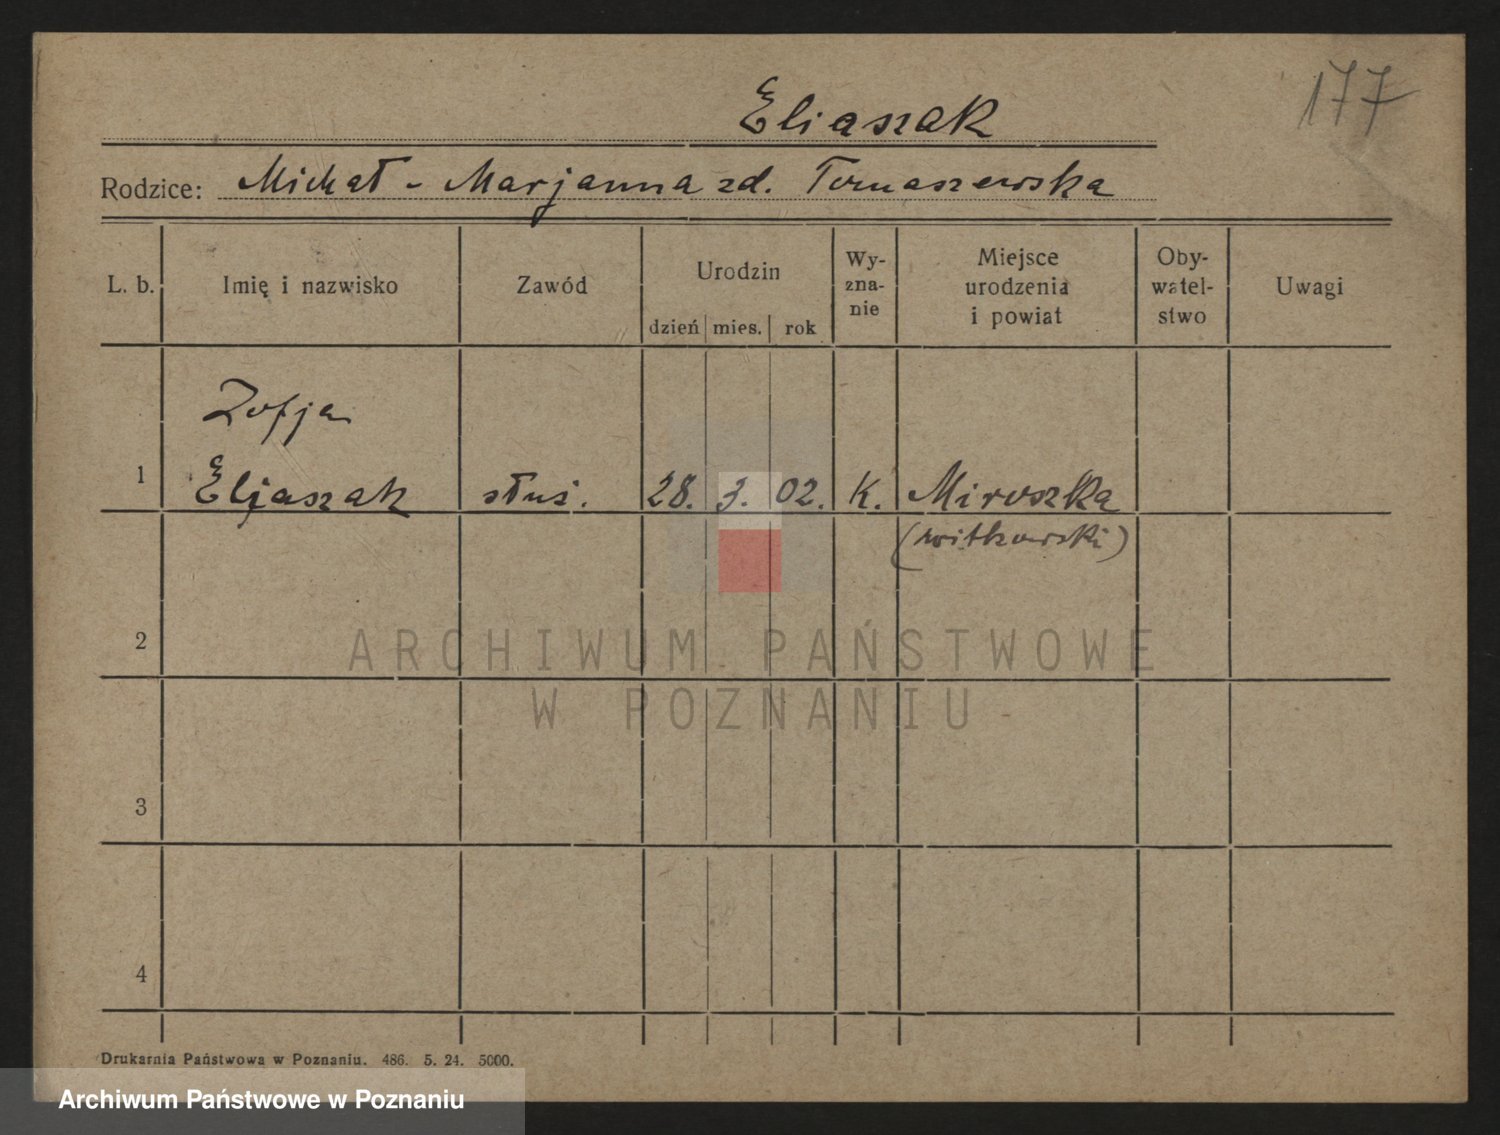 177
Eliaszak
Rodzice: Michał - Marjanna zd. Tomaszewska
L. b.
Imię i nazwisko
Zawód
Urodzin
dzień mies. rok
Wy-
zna-
nie
Miejsce
urodzenia
i powiat
Oby-
watel-
stwo
Uwagi
Zofja
1 Eljaszak służ. 28. 3. 02. K. Miroszka
(witkowski)
2
ARCHIWUM PAŃSTWOWE
W POZNANIU
3
4
Drukarnia Państwowa w Poznaniu. 486. 5. 24. 5000.
Archiwum Państwowe w Poznaniu